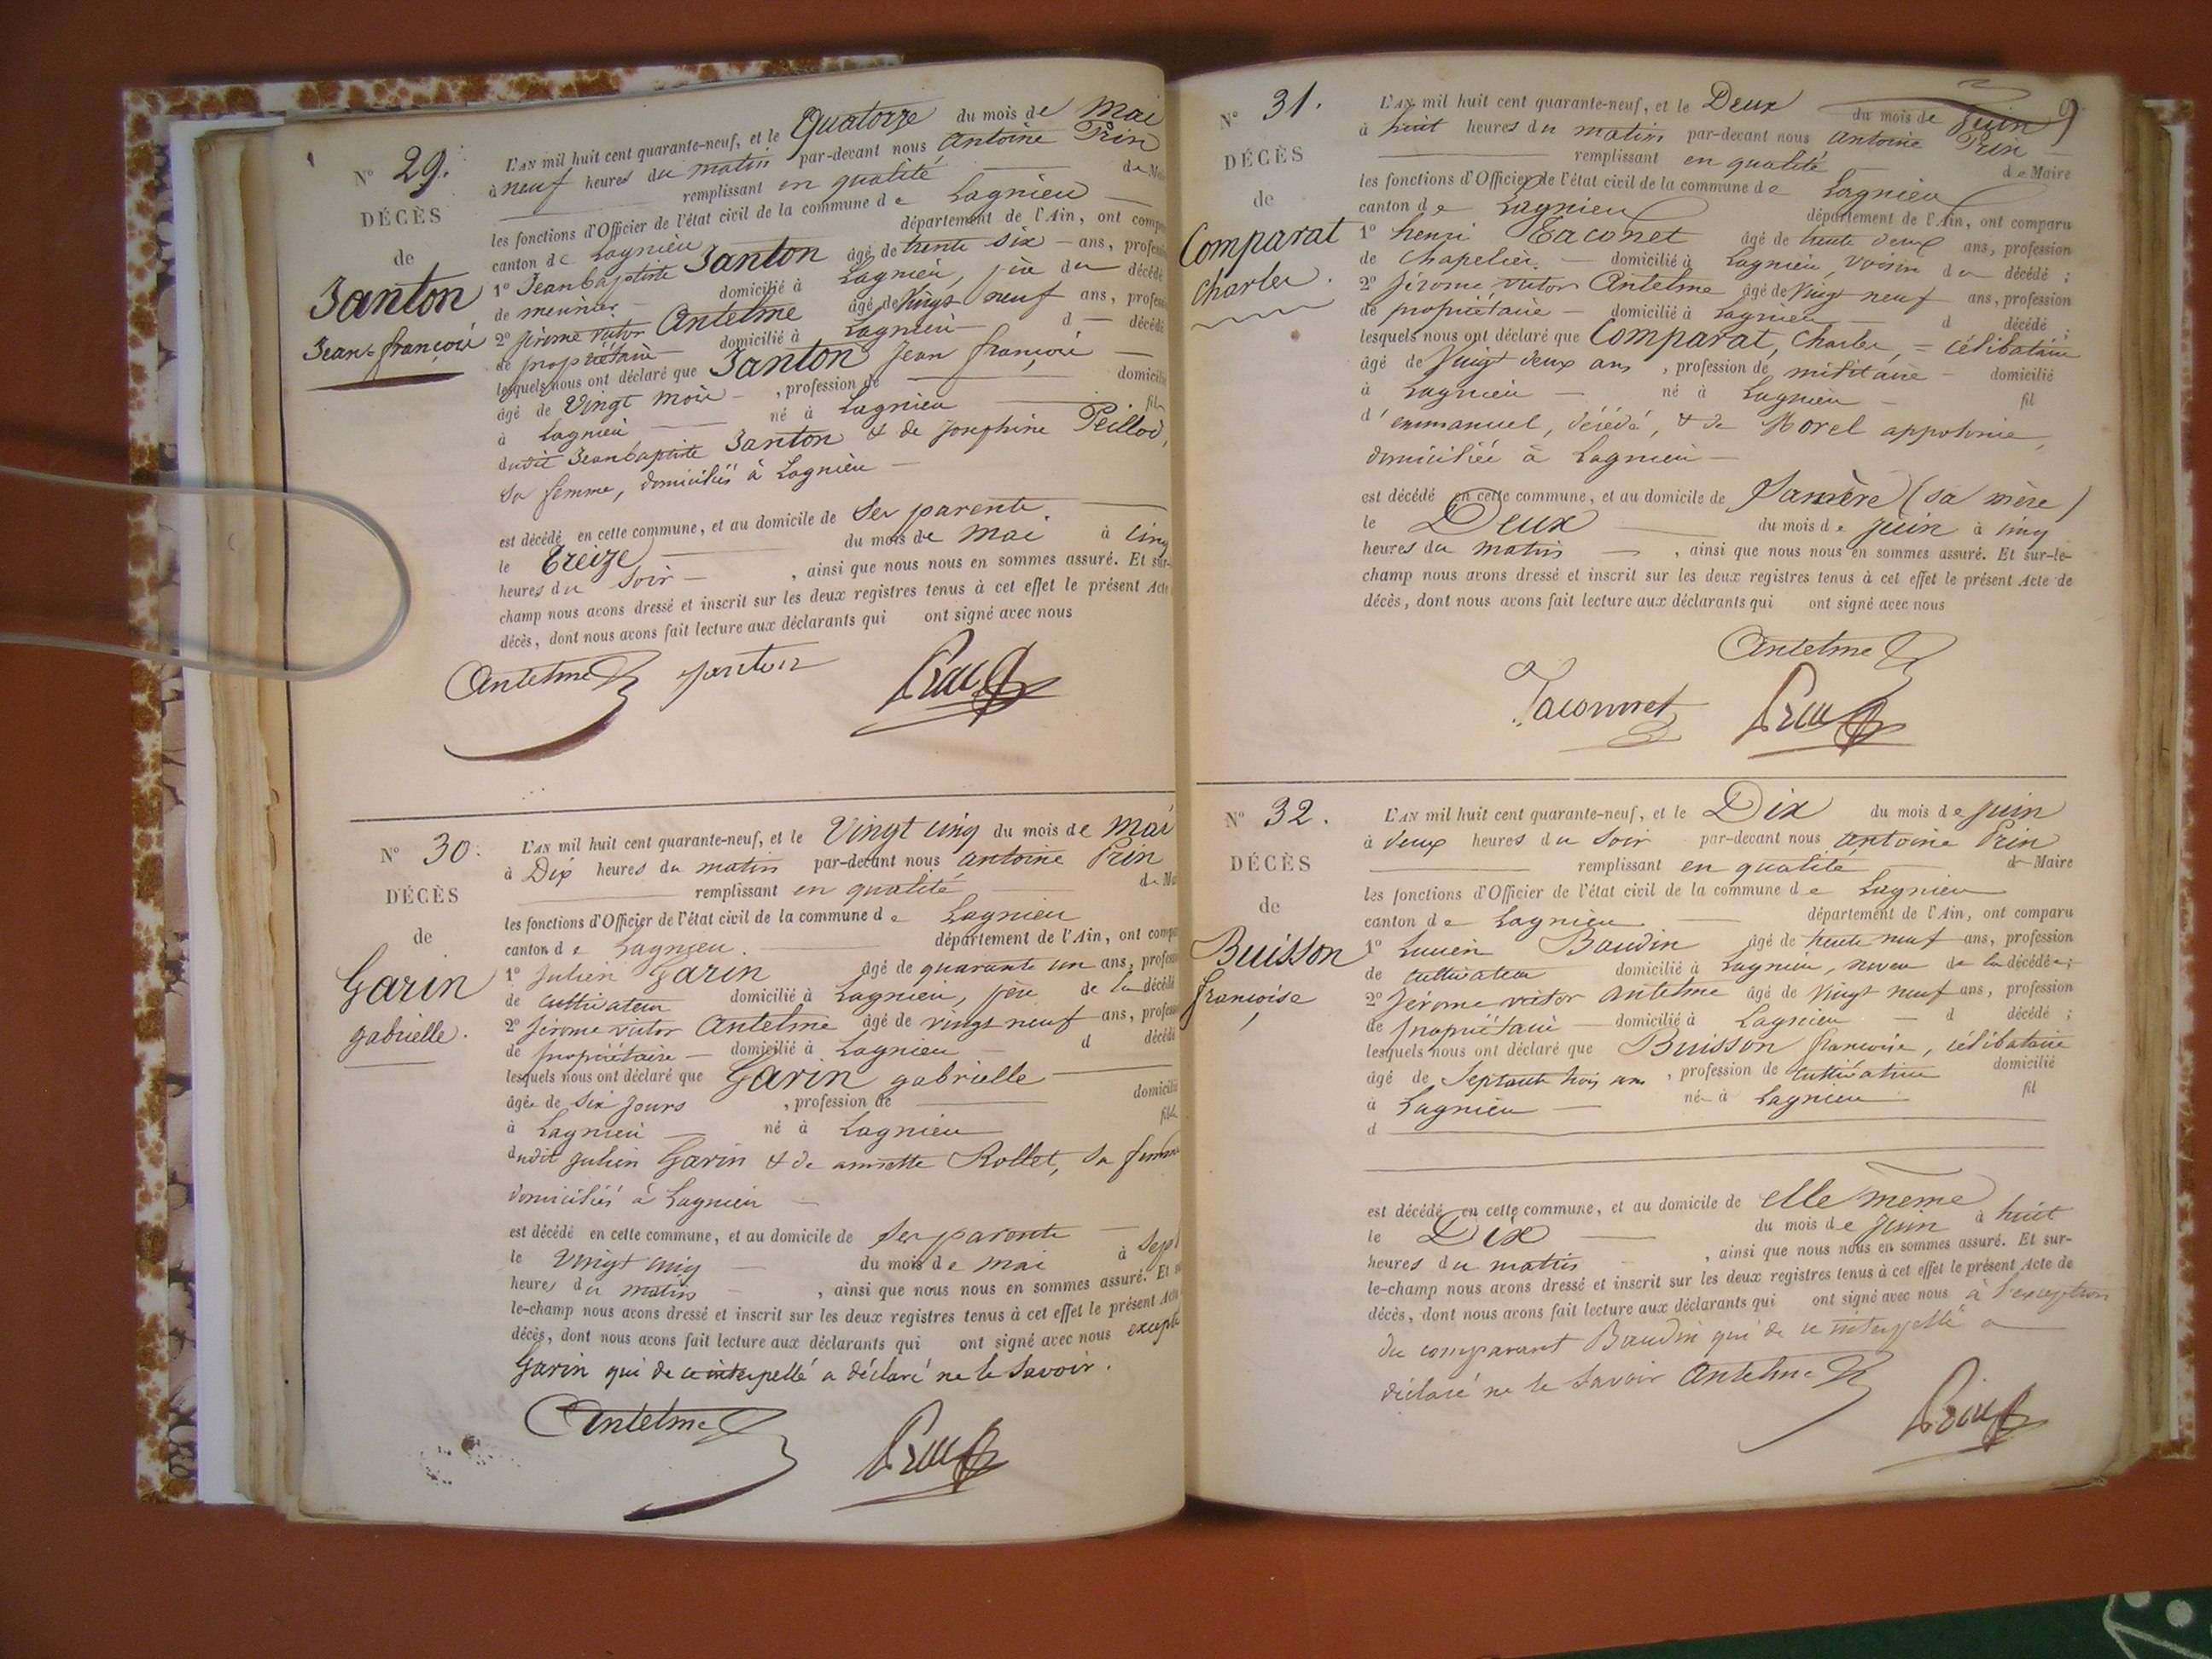 N° 29.
DÉCÈS
de
Janton
Jean-françois
L'AN mil huit cent quarante-neuf, et le Quatorze du mois de Mai
à neuf heures du matin par-devant nous Antoine Prin
remplissant en qualité de
les fonctions d'Officier de l'état civil de la commune de Lagnieu
canton de Lagnieu département de l'Ain, ont
1° Jean baptiste Janton âgé de trente six ans,
de meunier domicilié à Lagnieu, père du décédé
2° Jérome victor Antelme âgé de Vingt neuf ans,
de propriétaire domicilié à Lagnieu d décédé
lesquels nous ont déclaré que Janton Jean françois
âgé de Vingt mois , profession de
à Lagnieu né à Lagnieu fils
dudit Jean baptiste Janton & de Josephine Peillod,
sa femme, domiciliés à Lagnieu
est décédé en cette commune, et au domicile de ses parents
le Treize du mois de Mai à cinq
heures du soir , ainsi que nous nous en sommes assuré. Et sur-
champ nous avons dressé et inscrit sur les deux registres tenus à cet effet le présent Acte
décès, dont nous avons fait lecture aux déclarants qui ont signé avec nous
Antelme Janton Prin
N° 30.
DÉCÈS
de
Garin
gabrielle.
L'AN mil huit cent quarante-neuf, et le Vingt cinq du mois de Mai
à Dix heures du matin par-devant nous antoine Prin
remplissant en qualité de
les fonctions d'Officier de l'état civil de la commune de Lagnieu
canton de Lagnieu. département de l'Ain, ont
1° Julien Garin âgé de quarante un ans,
de cultivateur domicilié à Lagnieu, père de la décédé
2° Jérome victor Antelme âgé de vingt neuf ans,
de propriétaire domicilié à Lagnieu d décédé
lesquels nous ont déclaré que Garin gabrielle
âgée de six jours , profession de domicilié
à Lagnieu né à Lagnieu fille
dudit Julien Garin & de annette Rollet, sa femme
domiciliés à Lagnieu
est décédé en cette commune, et au domicile de ses parents
le Vingt cinq du mois de mai à Sept
heures du matin , ainsi que nous nous en sommes assuré. Et
le-champ nous avons dressé et inscrit sur les deux registres tenus à cet effet le présent Acte
décès, dont nous avons fait lecture aux déclarants qui ont signé avec nous excepté
Garin qui de ce interpellé a déclaré ne le savoir.
Antelme Prin
9
N° 31.
DÉCÈS
de
Comparat
Charles.
L'AN mil huit cent quarante-neuf, et le Deux du mois de Juin
à huit heures du matin par-devant nous antoine Prin
remplissant en qualité de Maire
les fonctions d'Officier de l'état civil de la commune de Lagnieu
canton de Lagnieu département de l'Ain, ont comparu
1° henri Taconet âgé de trente deux ans, profession
de chapelier domicilié à Lagnieu, voisin du décédé ;
2° Jérome victor Antelme âgé de Vingt neuf ans, profession
de propriétaire domicilié à Lagnieu d décédé ;
lesquels nous ont déclaré que Comparat, Charles, célibataire
âgé de Vingt deux ans , profession de militaire domicilié
à Lagnieu né à Lagnieu fil
d'emmanuel, décédé, & de Morel appolonie,
domiciliée à Lagnieu
est décédé en cette commune, et au domicile de (sa mère)
le Deux du mois de juin à cinq
heures du matin , ainsi que nous nous en sommes assuré. Et sur-le-
champ nous avons dressé et inscrit sur les deux registres tenus à cet effet le présent Acte de
décès, dont nous avons fait lecture aux déclarants qui ont signé avec nous
Antelme
Taconnet Prin
N° 32.
DÉCÈS
de
Buisson
françoise
L'AN mil huit cent quarante-neuf, et le Dix du mois de juin
à deux heures du soir par-devant nous antoine Prin
remplissant en qualité de Maire
les fonctions d'Officier de l'état civil de la commune de Lagnieu
canton de Lagnieu département de l'Ain, ont comparu
1° Lucien Baudin âgé de trente neuf ans, profession
de cultivateur domicilié à Lagnieu, neveu de la décédée ;
2° Jérome victor antelme âgé de Vingt neuf ans, profession
de propriétaire domicilié à Lagnieu d décédé ;
lesquels nous ont déclaré que Buisson francoise, célibataire
âgé de Septante trois ans , profession de cultivatrice domicilié
à Lagnieu née à Lagnieu fil
d
est décédé en cette commune, et au domicile de elle meme
le Dix du mois de Juin à huit
heures du matin , ainsi que nous nous en sommes assuré. Et sur-
le-champ nous avons dressé et inscrit sur les deux registres tenus à cet effet le présent Acte de
décès, dont nous avons fait lecture aux déclarants qui ont signé avec nous à l'exception
du comparant Baudin qui de ce interpellé a
déclaré ne le savoir Antelme
Prin